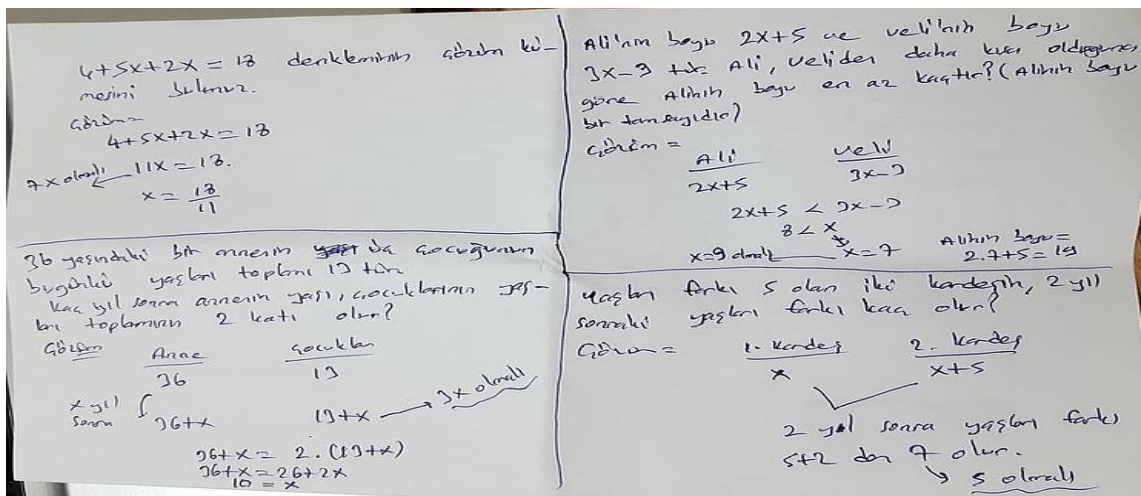 4+5x+2x = 18 denkleminin çözüm kü-
mesini bulunuz.
Çözüm=
4+5x+2x = 18
7x olmalı ← 11x = 18.
x = 18/11
36 yaşındaki bir annenin çocuğunun
bugünkü yaşları toplamı 13 tür
Kaç yıl sonra annenin yaşı, çocuklarının yaş-
ları toplamının 2 katı olur?
Çözüm
Anne Çocuklar
36 13
x yıl
sonra 36+x 13+x → 3x olmalı
36+x = 2.(13+x)
36+x = 26+2x
10 = x
Ali'nin boyu 2x+5 ve veli'nin boyu
3x-3 tür. Ali, veliden daha kısa olduğuna
göre Alinin boyu en az kaçtır? (Alinin boyu
bir tamsayıdır)
Çözüm =
Ali Veli
2x+5 3x-3
2x+5 < 3x-3
8 < x
x=9 olmalı x=7 Alinin boyu=
2.7+5=19
Yaşları farkı 5 olan iki kardeşin, 2 yıl
sonraki yaşları farkı kaç olur?
Çözüm=
1. kardeş 2. kardeş
x x+5
2 yıl sonra yaşları farkı
5+2 den 7 olur.
5 olmalı